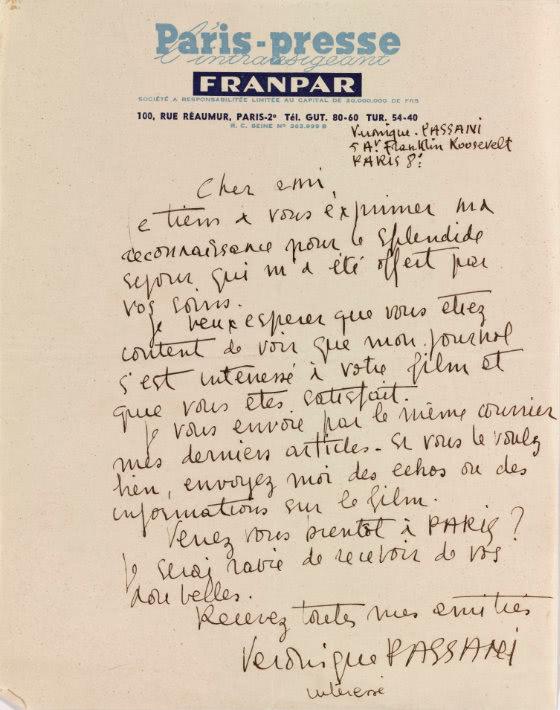 Paris-presse
l'intransigeant
FRANPAR
SOCIÉTÉ A RESPONSABILITÉE LIMITÉE AU CAPITAL DE 20.000.000 DE FRS
100, RUE RÉAUMUR, PARIS-2e Tél. GUT. 80-60 TUR. 54-40
R. C. SEINE No 263.999 B
Veronique. PASSANI
5 Av. Franklin Roosevelt
PARIS 8e
Cher ami,
Je tiens a vous exprimer ma
reconnaissance pour le splendide
sejour qui m'a été offert par
vos soins.
Je veux esperer que vous etiez
content de voir que mon journal
s'est interessé à votre film et
que vous êtes satisfait.
Je vous envoie par le même courrier
mes derniers articles - si vous le voulez
bien, envoyez moi des echos ou des
informations sur le film.
Venez vous bientot à PARIS ?
Je serai ravie de recevoir de vos
nouvelles.
Recevez toutes mes amitiés
Veronique PASSANI
interessé